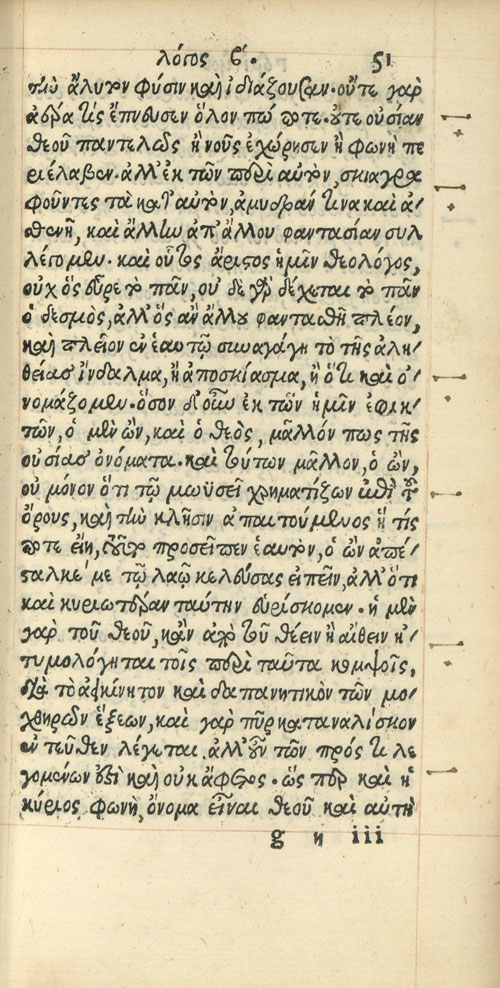 λόγος β΄. 51
τὴν ἄλυτον φύσιν καὶ ἰδιάζουσαν. οὔτε γὰρ
ἀέρα τὶς ἔπνευσεν ὅλον πώποτε. οὔτε οὐσίαν
θεοῦ παντελῶς ἢ νοῦς ἐχώρησεν ἢ φωνὴ πε
ριέλαβεν. ἀλλ' ἐκ τῶν περὶ αὐτὸν, σκιαγρα
φοῦντες τὰ κατ' αὐτὸν, ἀμυδράν τινα καὶ ἀ/
θενῆ, καὶ ἄλλην ἀπ' ἄλλου φαντασίαν συλ
λέγομεν. καὶ οὗτος ἄριστος ἡμῖν θεολόγος,
οὐχ ὃς εὗρε τὸ πᾶν, οὐ δὲ γὰρ δέχεται τὸ πᾶν
ὁ δεσμὸς, ἀλλ' ὃς ἂν ἄλλου φαντασθῇ πλέον,
καὶ πλεῖον ἐν ἑαυτῷ συναγάγῃ τὸ τῆς ἀλη/
θείας ἴνδαλμα, ἢ ἀποσκίασμα, ἢ ὅ τι καὶ ὀ/
νομάζομεν. ὅσον δ' οὖν ἐκ τῶν ἡμῖν ἐφικ/
τῶν, ὁ μὲν ὢν, καὶ ὁ θεὸς, μᾶλλόν πως τῆς
οὐσίας ὀνόματα. καὶ τούτων μᾶλλον, ὁ ὢν,
οὐ μόνον ὅτι τῷ μωϋσεῖ χρηματίζων ἐπὶ τοῦ
ὄρους, καὶ τὴν κλῆσιν ἀπαιτούμενος ἥ τίς
ποτε εἴη, τοῦτο προσεῖπεν ἑαυτὸν, ὁ ὢν ἀπέ/
σταλκέ με τῷ λαῷ κελεύσας εἰπεῖν, ἀλλ' ὅτι
καὶ κυριωτέραν ταύτην εὑρίσκομεν. ἡ μὲν
γὰρ τοῦ θεοῦ, κἂν ἀπὸ τοῦ θέειν ἢ αἴθειν ἠ/
τυμολόγηται τοῖς περὶ ταῦτα κομψοῖς,
διὰ τὸ ἀεικίνητον καὶ δαπανητικὸν τῶν μο/
χθηρῶν ἕξεων, καὶ γὰρ πῦρ καταναλίσκον
ἐντεῦθεν λέγεται. ἀλλ' οὖν τῶν πρός τι λε
γομένων ἐστὶ καὶ οὐκ ἄφετος. ὥσπερ καὶ ἡ
κύριος φωνὴ, ὄνομα εἶναι θεοῦ καὶ αὐτὴ
g η iii